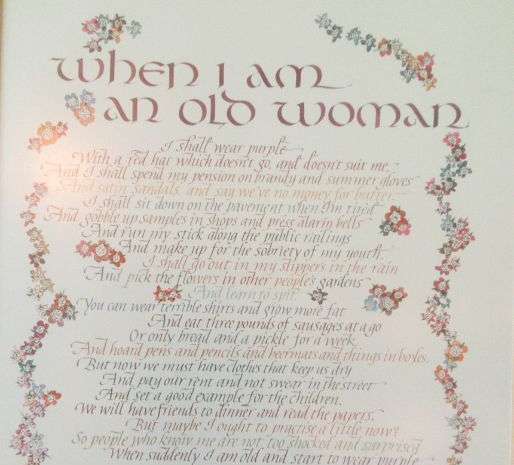 When I am
an old woman
I shall wear purple
With a red hat which doesn't go, and doesn't suit me,
And I shall spend my pension on brandy and summer gloves
And satin sandals, and say we've no money for butter.
I shall sit down on the pavement when I'm tired
And gobble up samples in shops and press alarm bells
And run my stick along the public railings
And make up for the sobriety of my youth.
I shall go out in my slippers in the rain
And pick the flowers in other people's gardens
And learn to spit.
You can wear terrible shirts and grow more fat
And eat three pounds of sausages at a go
Or only bread and a pickle for a week
And hoard pens and pencils and beermats and things in boxes.
But now we must have clothes that keep us dry
And pay our rent and not swear in the street
And set a good example for the children.
We will have friends to dinner and read the papers.
But maybe I ought to practise a little now?
So people who know me are not too shocked and surprised
When suddenly I am old and start to wear purple